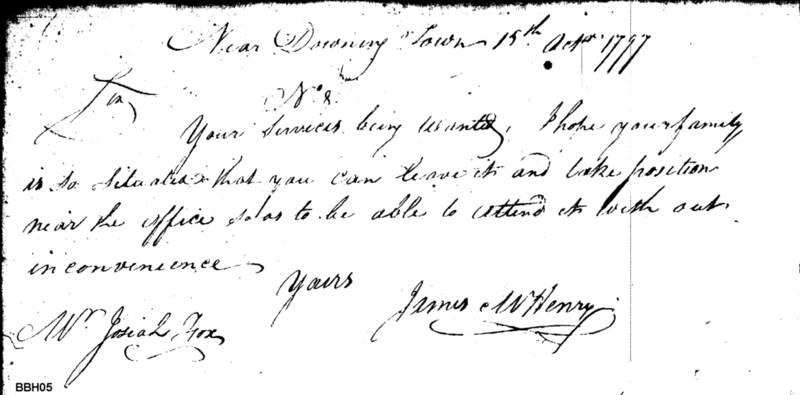 Near Downing Town 15th Octr 1797
Sir,
No 8.
Your services being wanted, I hope your family
is so situated that you can leave it and take position
near the office so as to be able to attend it with out
inconvenience
Yours
James McHenry
Mr Josiah Fox
BBH05